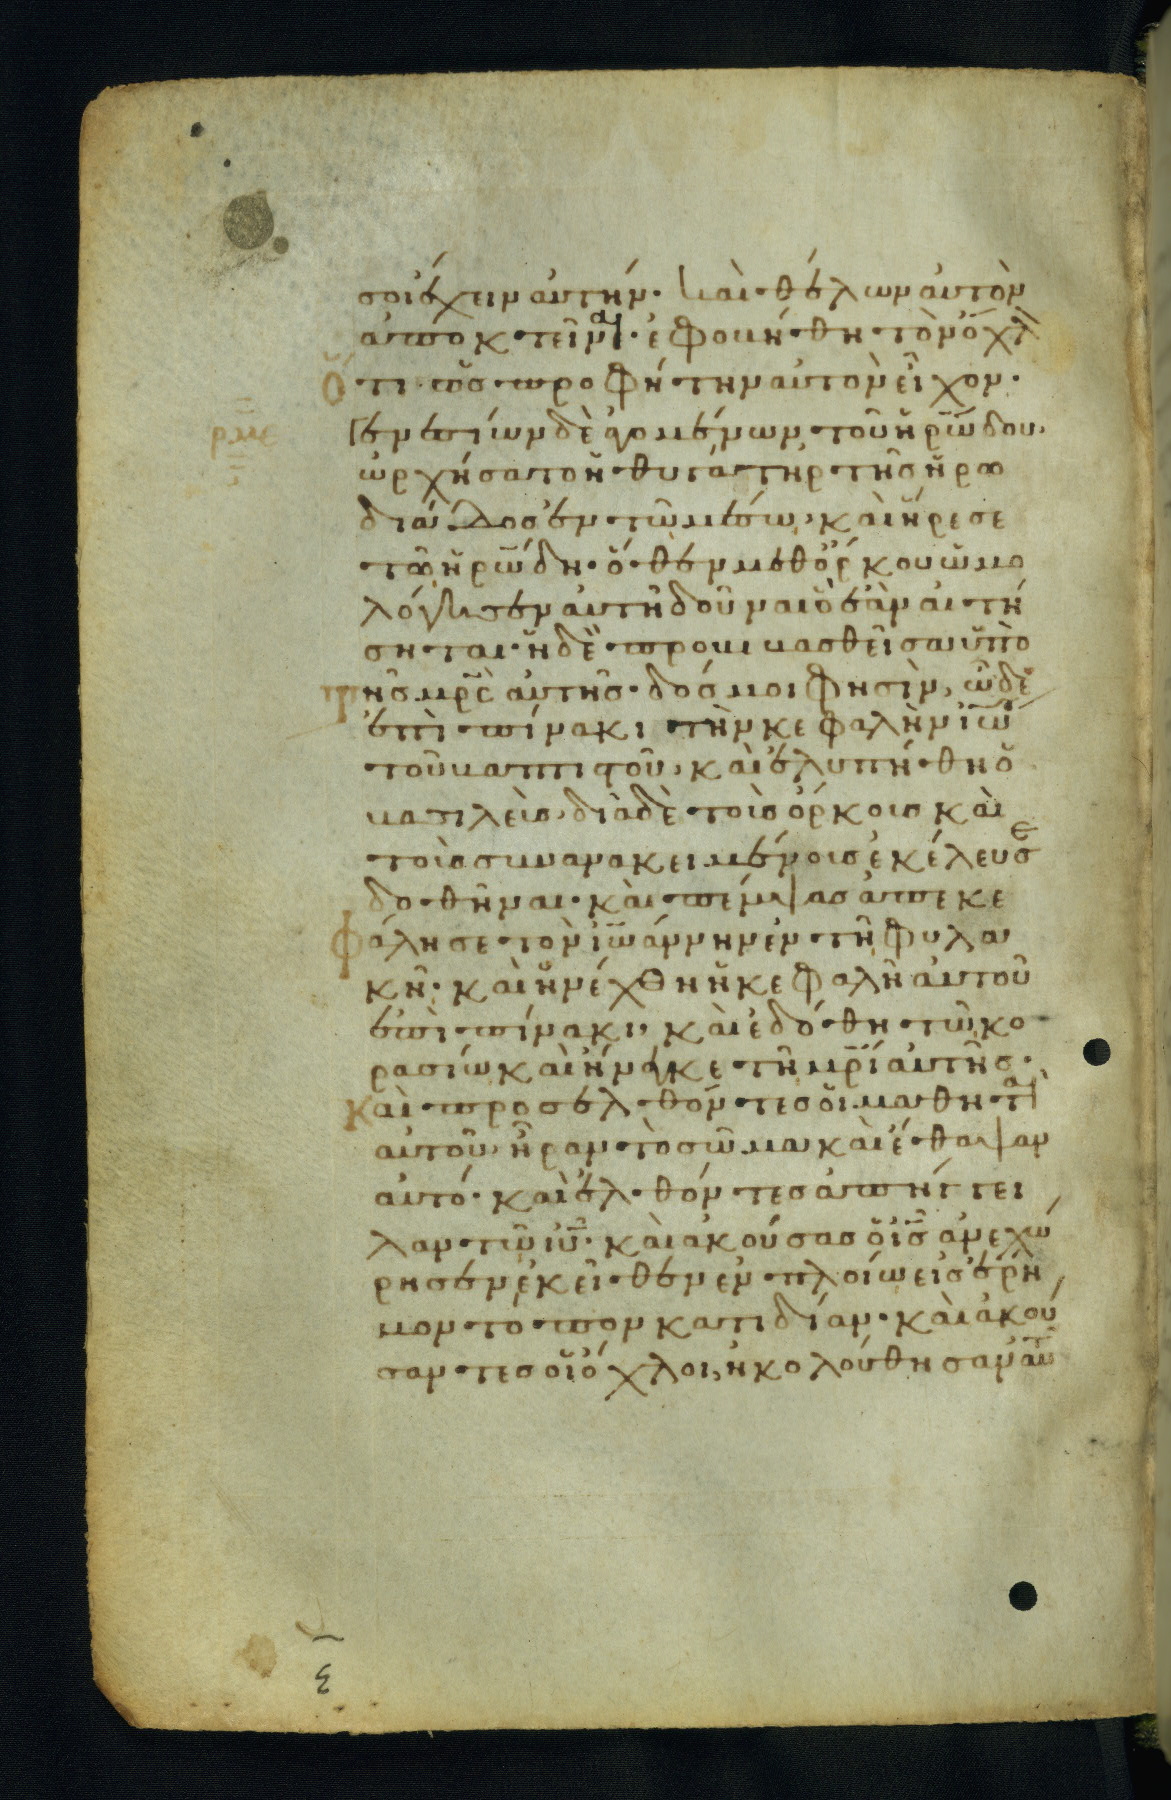 σοι ἔχειν αὐτήν. καὶ θέλων αὐτὸν
ἀποκτεῖναι. ἐφοβήθη τὸν ὄχλ
ὅτι ὡς προφήτην αὐτὸν εἶχον.
ρμε
γενεσίων δὲ ἀγομένων τοῦ ἡρώδου,
ὠρχήσατο ἡ θυγάτηρ τῆς ἡρω
διάδος ἐν τῶ μέσω, καὶ ἤρεσε
τῶ ἡρώδη. ὅθεν μεθόρκου ὡμο
λόγησεν αὐτῆ δοῦναι ὃ ἐὰν αἰτή
σηται. ἡ δὲ προβιβασθεῖσα ὑπὸ
τῆς μρ̅ς αὐτῆς. δός μοι φησὶν, ὧδε
ἐπὶ πίνακι τὴν κεφαλὴν ἰω̅
τοῦ βαπτιστοῦ, καὶ ἐλυπήθη ὁ
βασιλεὺς, διὰ δὲ τοὺς ὅρκους καὶ
τοὺς συνανακειμένους ἐκέλευσε
δοθῆναι. καὶ πέμψας ἀπεκε
φάλησε τὸν ἰωάννην ἐν τῆ φυλα
κῆ. καὶ ἠνέχθη ἡ κεφαλὴ αὐτοῦ
ἐπὶ πίνακι, καὶ ἐδόθη τῶ κο
ρασίω καὶ ἤνεγκε τῆ μρ̅ι αὐτῆς.
καὶ προσελθόντες οἱ μαθηταὶ
αὐτοῦ, ἦραν τὸ σῶμα καὶ ἔθαψαν
αὐτό. καὶ ἐλθόντες ἀπήγγει
λαν τῶ ιυ̅. καὶ ἀκούσας ὁ ις̅ ἀνεχώ
ρησεν ἐκεῖθεν ἐν πλοίω εἰς ἔρη
μον τόπον κατιδίαν. καὶ ἀκού
σαντες οἱ ὄχλοι, ἠκολούθησαν αὐτ
ε